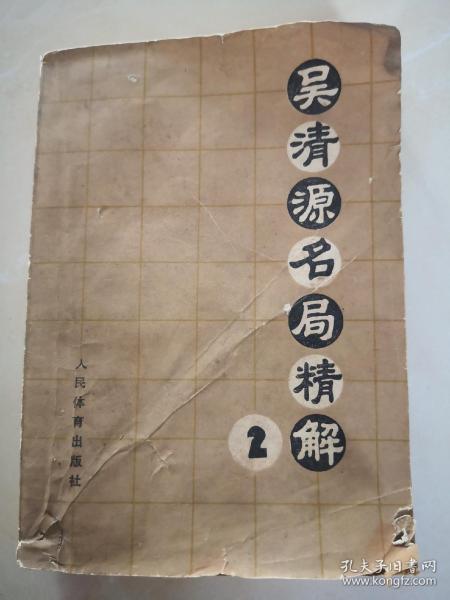 吴清源名局精解
2
人民体育出版社
孔夫子旧书网
www.kongfz.com